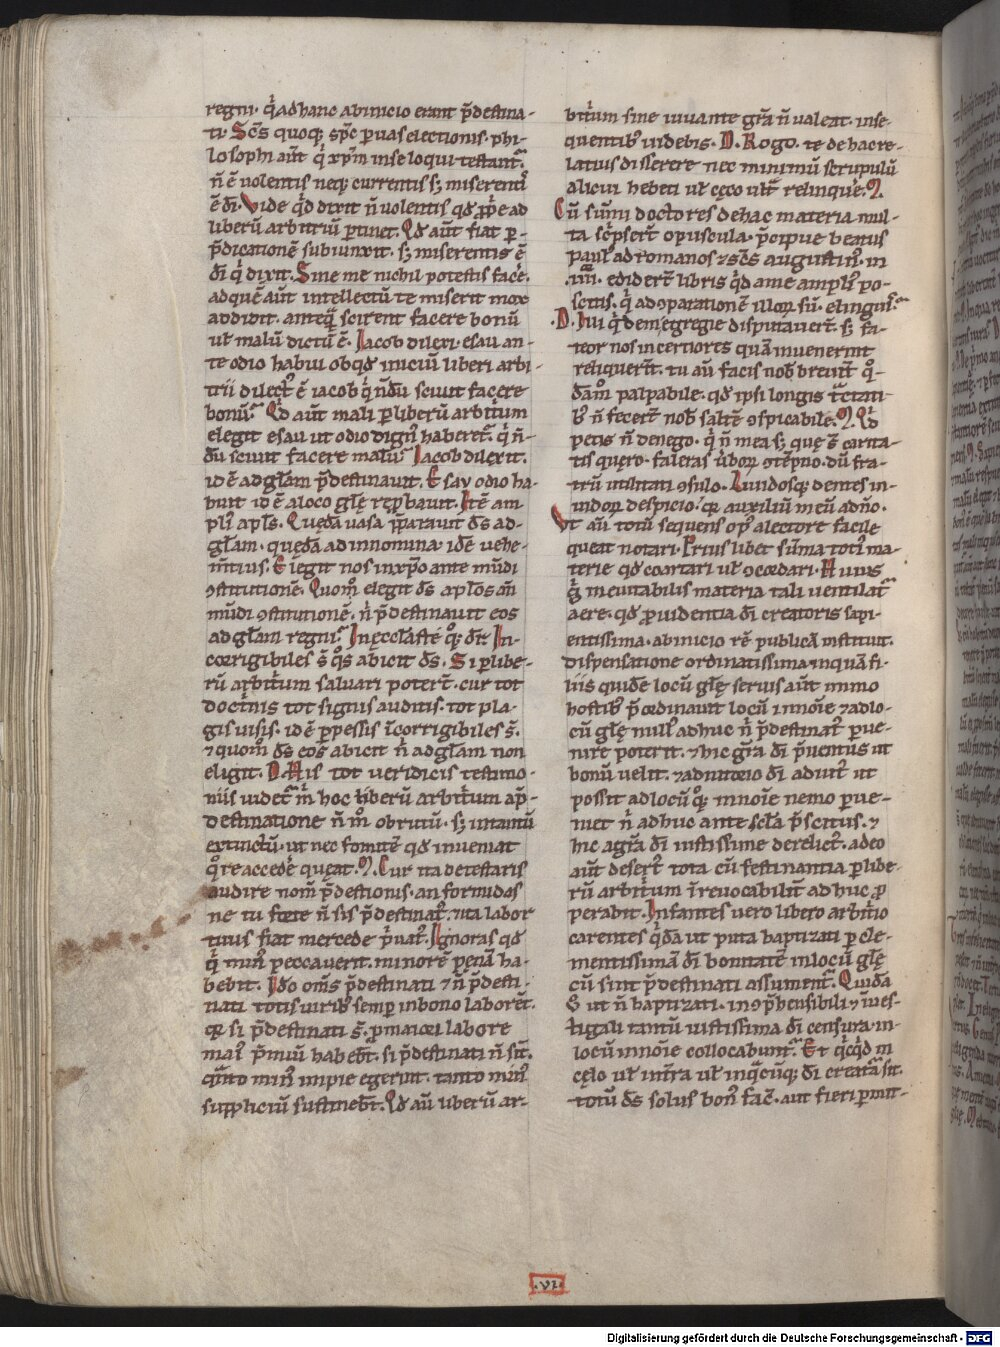 regni. q̇ adhanc abinicio erant p̄destina-
ti. Sc̄s quoq; sp̄c ꝑ uas electionis. phi-
losophi aūt q̇ xp̄m inse loqui testant᷑.
n̄ ē uolentis neq; currentis s; miserenti᷒
ē dī. Vide qd̄ dixit n̄ uolentis qd̄ ꝓp̄e ad
liberū arbitriū ꝑtinet. Qd̄ aūt fiat ꝑ-
p̄dicationē subiunxit. s; miserentis ē
dī q̇ dixit. Sine me nichil potestis face᷑.
adquē aūt intellectū te miserit mox
addidit. anteq̄ scirent facere bonū
ul̄ malū dictū ē. Iacob dilexi. esau au-
te odio habui obqd̄ iniciū liberi arbi-
trii dilect᷒ ē iacob q̇ ndū sciuit facere
bonū. Qd̄ aūt mali ꝑ liberū arbit̄um
elegit esau ut odio dign᷒ haberet᷑. q̇ n̄-
dū sciuit facere malū. Iacob dilexit.
id ē adgl̄am p̄destinauit. Esau odio ha-
buit id ē aloco glę rep̄bauit. Itē am-
pli᷒ apl̄s. Quędā uasa p̄parauit ds̄ ad-
gl̄am. quędā adinnomina. idē uehe-
m̄tius. Elegit nos inxp̄o ante mūdi
ꝯstitutionē. Quom̊ elegit ds̄ apl̄os an̄
mūdi ꝯstitutionē. n̄ p̄destinauit eos
ad gl̄am regni. In ęccl̄aste q; dr̄. In-
corrigibiles s̄ q̊s abicit ds̄. Si ꝑ libe-
rū arbit̄um saluari poter̄t. cur tot
doct̄nis tot signis auditis. tot pla-
gis uisis. id ē ꝑpessis īcorrigibiles s̄.
⁊ quom̊ ds̄ eos abicit n̄ adgl̄am non
eligit. D. His tot ueridicis testimo-
niis uidet᷑ m̄ hoc liberū arbit̄um a p̄-
destinatione n̄ m̊ obrutū. s; intantū
extinctū. ut nec fomitē qd̄ inueniat
q̊ reaccede᷑ queat. M. Cur ita detestaris
audire nom̄ p̄destionis. an formidas
ne tu forte n̄ sis p̄destinat᷒. ⁊ ita labor
tuus fiat mercede p̄uat᷒. Ignoras qd̄
q̇ min᷒ peccauerit. minorē penā ha-
bebit. Ido oms̄ p̄destinati ⁊ n̄ p̄desti-
nati totis uirib᷒ semꝑ inbono laborēt.
qr̄ si p̄destinati s̄. ꝓ maiori labore
mai᷒ p̄miū habebt̄. si p̄destinati n̄ st̄.
quāto min᷒ impie egerint. tanto min᷒
suppliciū sustinebt̄. Qd̄ aū liberū ar-
bit̄um sine iuuante gr̄a n̄ ualeat. inse-
quentib᷒ uidebis. D. Rogo. te de hac re-
latius disserere nec minimū scrupulū
alicui hebeti ul̄ cęco ult̄ relinque᷑. M.
Cū sūmi doctores dehac materia mul-
ta sc̄pser̄t opuscula. p̄cipue beatus
paul᷒ ad romanos ⁊ sc̄s augustin᷒. in
.iiii. edider̄t libris qd̄ a me ampli᷒ po-
scitis. q̇ ad oparationē illoꝝ sū. elinguis.
.D. Hii q̇dem egregie disputauer̄t. s; fa-
teor nos incertiores quā inuenerint
reliquer̄t. tu aū facis nob̄ breuit̄ q̊-
dam̊ palpabile. qd̄ ipsi longis tractati-
b᷒ n̄ fecer̄t nob̄ saltē ꝯspicabile. M. Qd̄
petis n̄ denego. q̇ n̄ mea s; quę s̄ carita-
tis quęro. faleras u̇boꝝ ꝯtēpno. dū fra-
trū utilitati ꝯsulo. Liuidosq; dentes in-
uidoꝝ despicio. qr̄ auxiliū meū adn̄o.
Vt aū totū sequens op᷒ a lectore facile
queat notari. Prius libet sūma toti᷒ ma-
terie qd̄ coartari ul̄ ꝯcordari. Huius
g̊ ineuitabilis materia tali uentilat᷑
aere. qd̄ ꝓuidentia dī creatoris sapi-
entissima. abinicio rē publicā instituit.
dispensatione ordinatissima inquā fi-
liis quidē locū glę seruis aūt immo
hostib᷒ p̄ordinauit locū innoīe ⁊ adlo-
cū glę null᷒ adhuc n̄ p̄destinat᷒ ꝑue-
nire poterit. ⁊ hic gr̄a dī p̄uentus ut
bonū uelit. ⁊ adiutorio dī adiut᷒ ut
possit ad locū q; innoīe nemo ꝑue-
niet n̄ adhuc ante scl̄a p̄scitus. ⁊
hic a gr̄a dī iustissime derelict᷒. adeo
aūt desert᷒ tota cū festinantia ꝑ libe-
rū arbit̄um īreuocabilit̄ adhuc ꝓ
perabit. Infantes uero libero arbit̄io
carentes q̇dā ut puta baptizati ꝑ cle-
mentissimā dī bonitatē inlocū glę
cū sint p̄destinati assumunt᷑. Quidā
ū ut n̄ baptizati. in ꝯp̄hensibili ⁊ iues-
tigali tantū iustissima dī censura in-
locū innoīe collocabunt᷑. Et q̇cq̇d in
cęlo ul̄ int̄ra ul̄ inq̄cūq; dī creat᷑a sit.
totū ds̄ solus bon᷒ fac̄. aut fieri ꝑmit-
.vi.
Digitalisierung gefördert durch die Deutsche Forschungsgemeinschaft - DFG